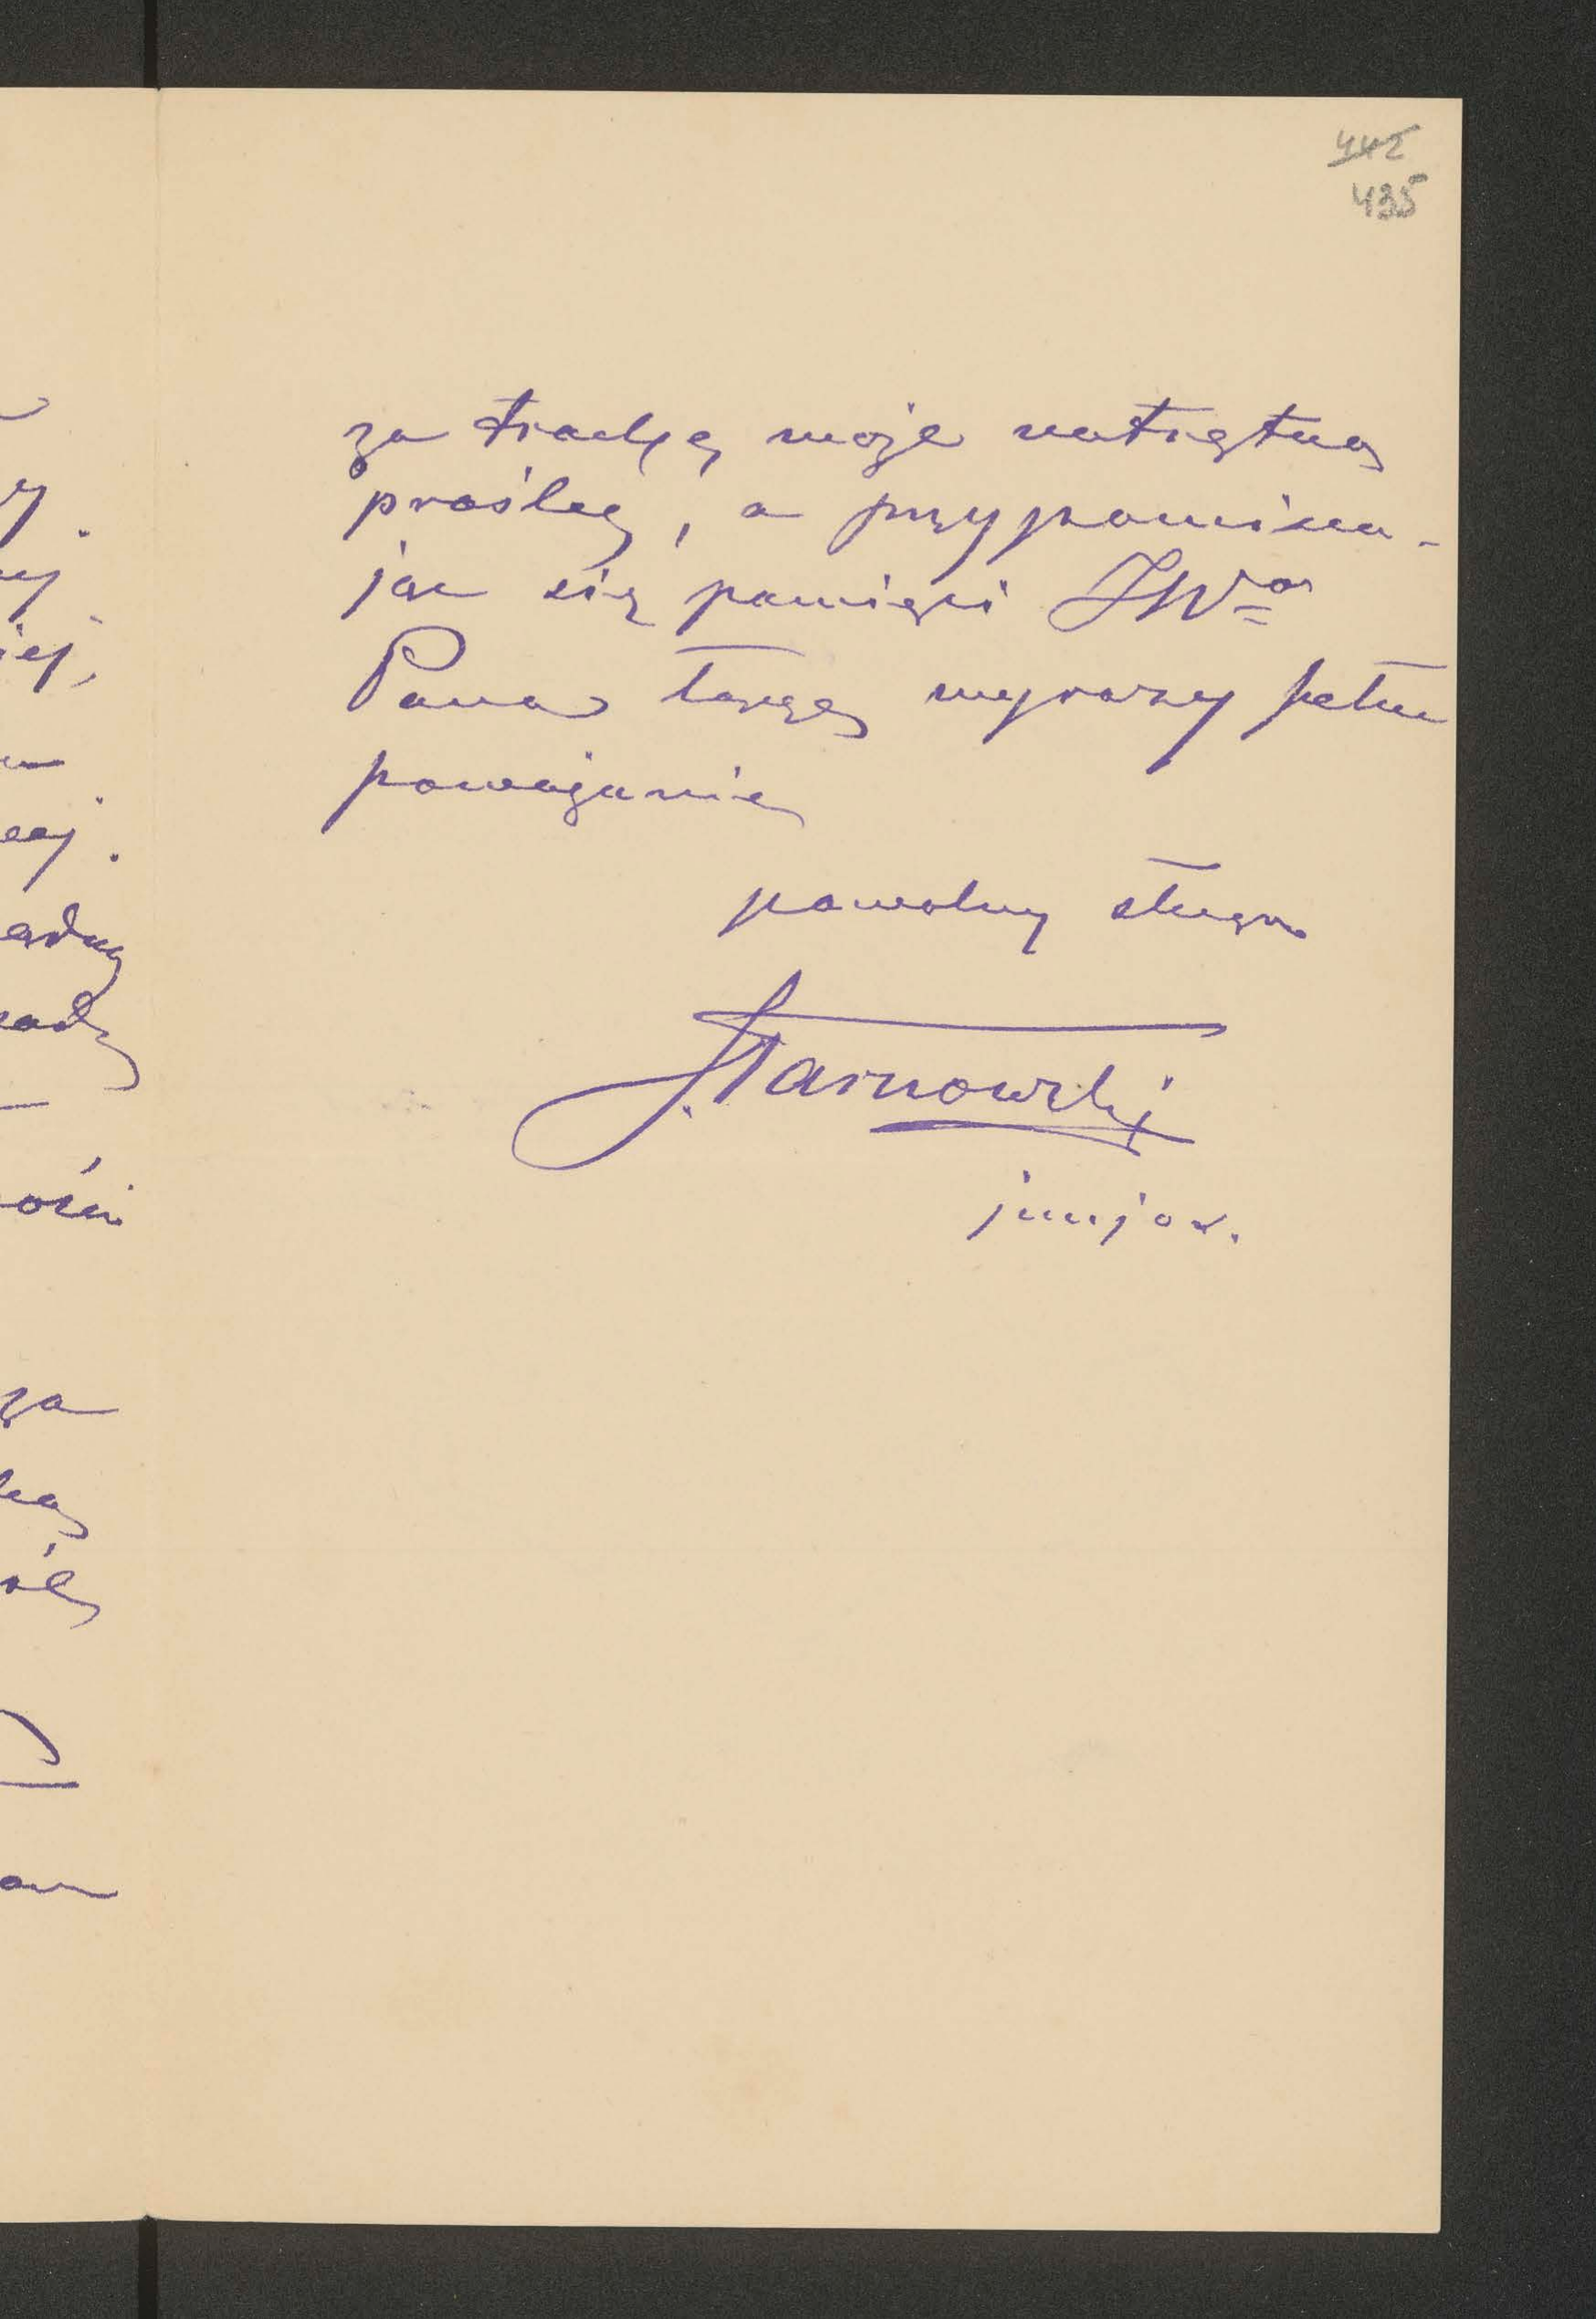 442
435
za trochę może natrętną
prośbę, a przypomina-
jąc się pamięci JWo
Pana łączę wyrazy pełne
poważania
powolny sługa
STarnowski
junjor.